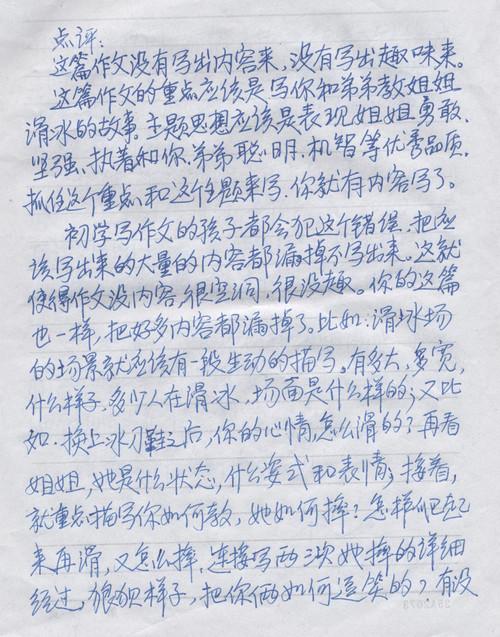 点评:
这篇作文没有写出内容来,没有写出趣味来。
这篇作文的重点应该是写你和弟弟教姐姐
滑冰的故事。主题思想应该是表现姐姐勇敢.
坚强.执着和你.弟弟聪明.机智等优秀品质.
抓住这个重点和这个主题来写.你就有内容写了。
初学写作文的孩子都会犯这个错误.把应
该写出来的大量的内容都漏掉不写出来。这就
使得作文没内容.很空洞.很没趣。你的这篇
也一样,把好多内容都漏掉了。比如:滑冰场
的场景就应该有一段生动的描写。有多大,多宽,
什么样子.多少人在滑冰,场面是什么样的;又比
如.换上冰刀鞋之后,你的心情,怎么滑的?再看
姐姐,她是什么状态,什么姿式和表情;接着,
就重点描写你如何教,她如何摔?怎样爬起
来再滑,又怎么摔.连接写两三次她摔的详细
经过,狼狈样子,把你俩如何逗笑的?有没